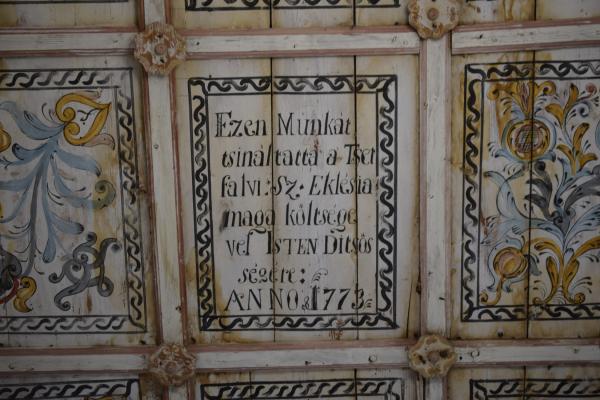 Ezen Munkat
tsináltatta a Tser
falvi: Sz: Eklésia
maga költsége
vel ISTEN Ditsös
ségére:
ANNO 1773